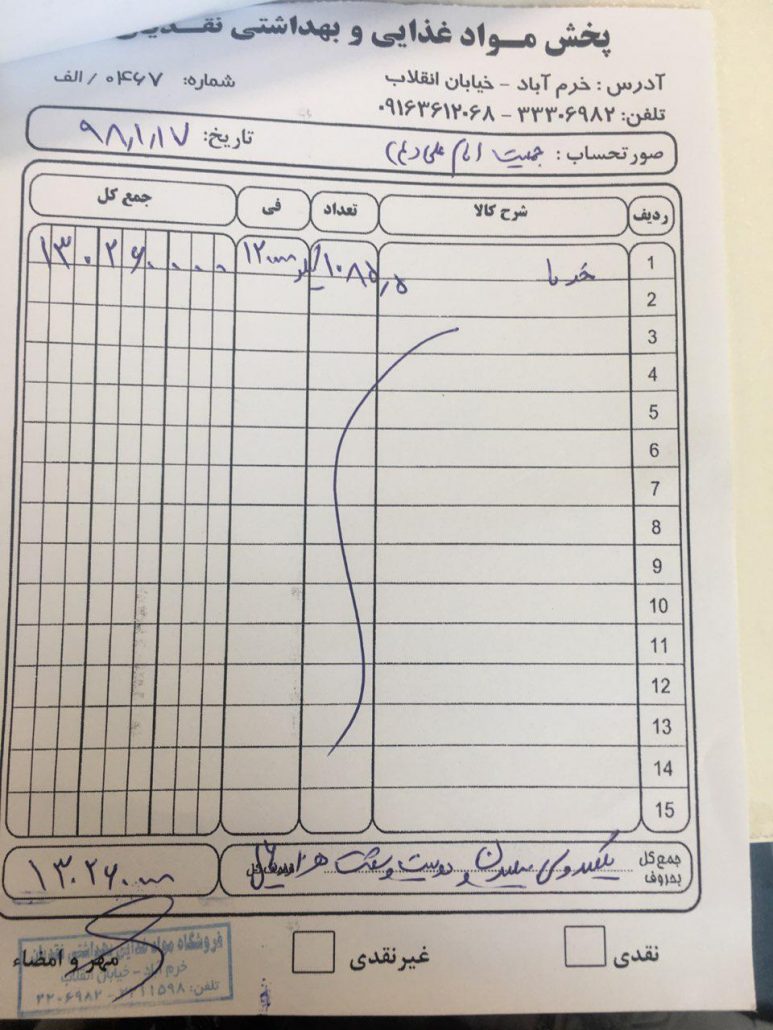 پخش مواد غذایی و بهداشتی
آدرس : خرم آباد - خیابان انقلاب
شماره: ۰۴۶۷ / الف
تلفن: ۳۳۳۰۶۹۸۲ - ۰۹۱۶۳۶۱۲۰۶۸
صورتحساب : جمعیت امام علی (ع)
تاریخ: ۹۸/۱/۱۷
ردیف شرح کالا تعداد فی جمع کل
1 خرما ۱۰۸۵٫۵ کیلو ۱۲۰۰۰۰ ۱۳۰۲۶۰۰۰۰
2
3
4
5
6
7
8
9
10
11
12
13
14
15
جمع کل بحروف یکصد و سی میلیون و دویست و شصت هزار ریال ۱۳۰۲۶۰۰۰۰
نقدی غیرنقدی مهر و امضاء
فروشگاه مواد غذایی بهداشتی نقدیان
خرم آباد - خیابان انقلاب
تلفن: